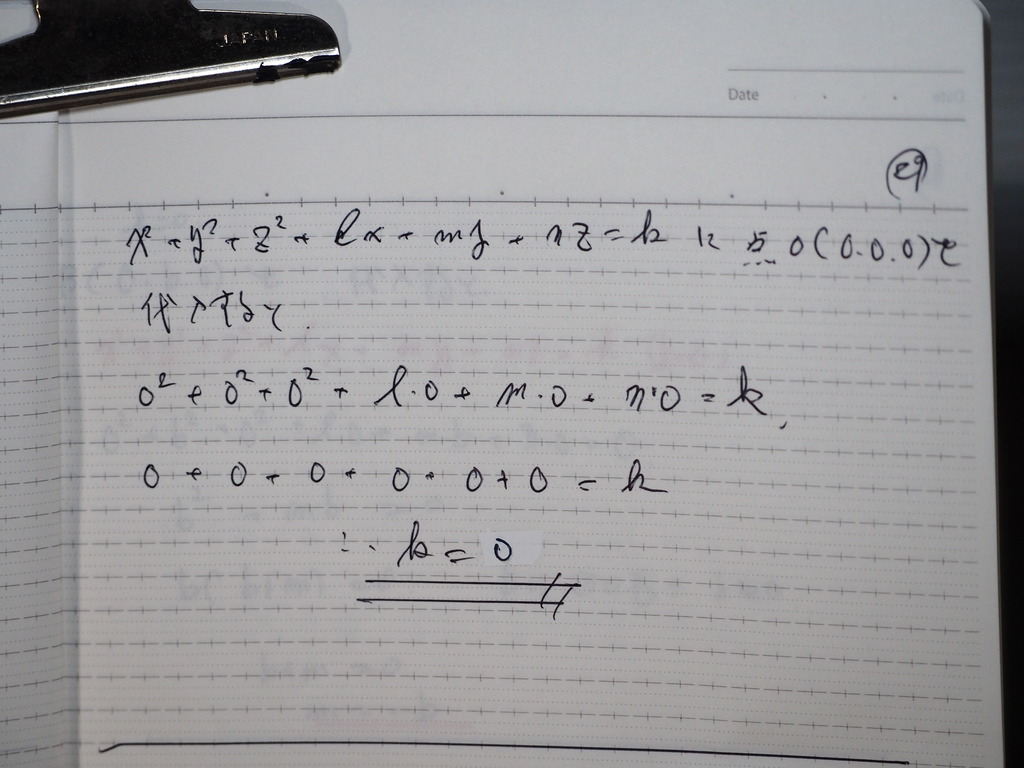 JAPAN
Date
x² + y² + z² + lx + my + nz = k に 点 O(0.0.0)を
代入すると
0² + 0² + 0² + l·0 + m·0 + n·0 = k,
0 + 0 + 0 + 0 + 0 + 0 = k
∴ k = 0